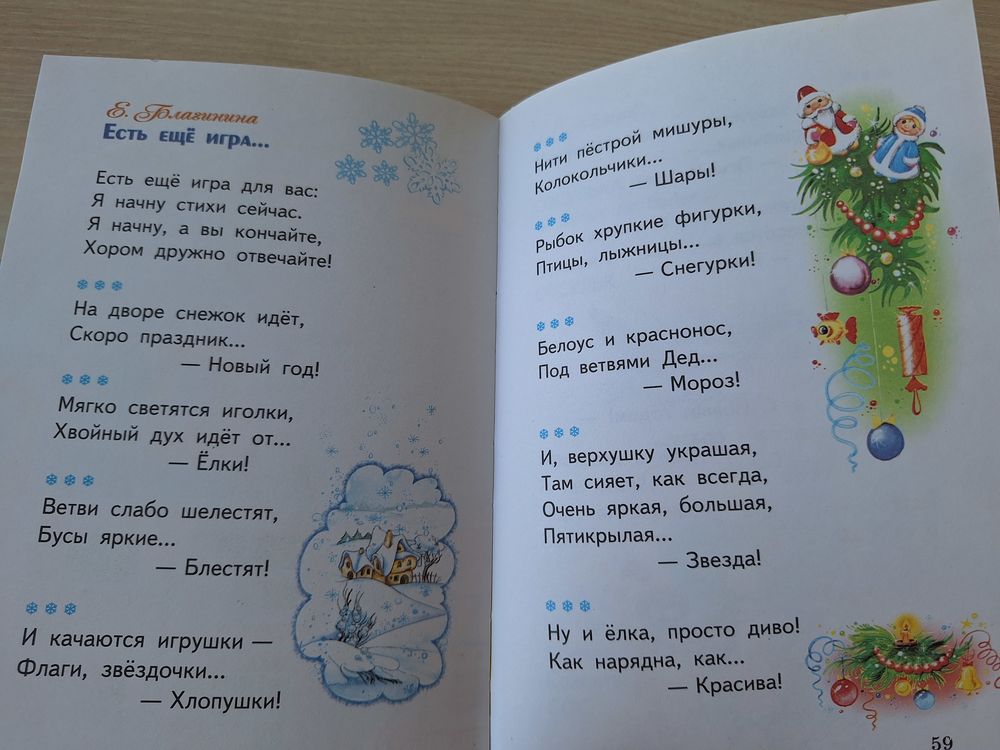 Е. Благинина
Есть ещё игра...
Есть ещё игра для вас:
Я начну стихи сейчас.
Я начну, а вы кончайте,
Хором дружно отвечайте!
На дворе снежок идёт,
Скоро праздник...
— Новый год!
Мягко светятся иголки,
Хвойный дух идёт от...
— Ёлки!
Ветви слабо шелестят,
Бусы яркие...
— Блестят!
И качаются игрушки —
Флаги, звёздочки...
— Хлопушки!
Нити пёстрой мишуры,
Колокольчики...
— Шары!
Рыбок хрупкие фигурки,
Птицы, лыжницы...
— Снегурки!
Белоус и краснонос,
Под ветвями Дед...
— Мороз!
И, верхушку украшая,
Там сияет, как всегда,
Очень яркая, большая,
Пятикрылая...
— Звезда!
Ну и ёлка, просто диво!
Как нарядна, как...
— Красива!
59